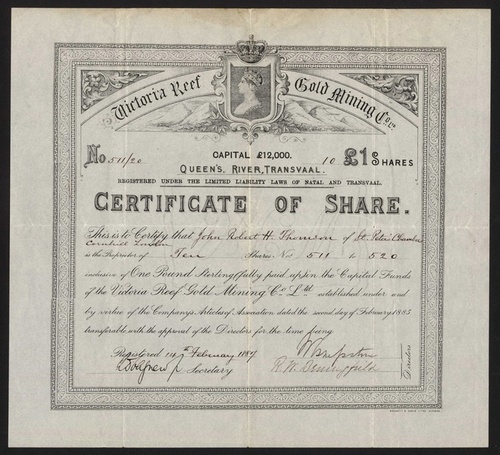 Victoria Reef Gold Mining Coy
CAPITAL £12,000.
No 511/20 10 £1 SHARES
QUEEN'S RIVER, TRANSVAAL.
REGISTERED UNDER THE LIMITED LIABILITY LAWS OF NATAL AND TRANSVAAL.
CERTIFICATE OF SHARE.
This is to Certify that John Robert H. Thomson of St. Peters Chambers
Cornhill London
is the Proprietor of Ten Share. Nos 511 to 520
inclusive of One Pound Sterling fully paid up in the Capital Funds
of the Victoria Reef Gold Mining Co. Ltd. established under and
by virtue of the Company's Articles of Association dated the second day of February 1885
transferable with the approval of the Directors for the time being
Registered 14th February 1887
Secretary
Directors